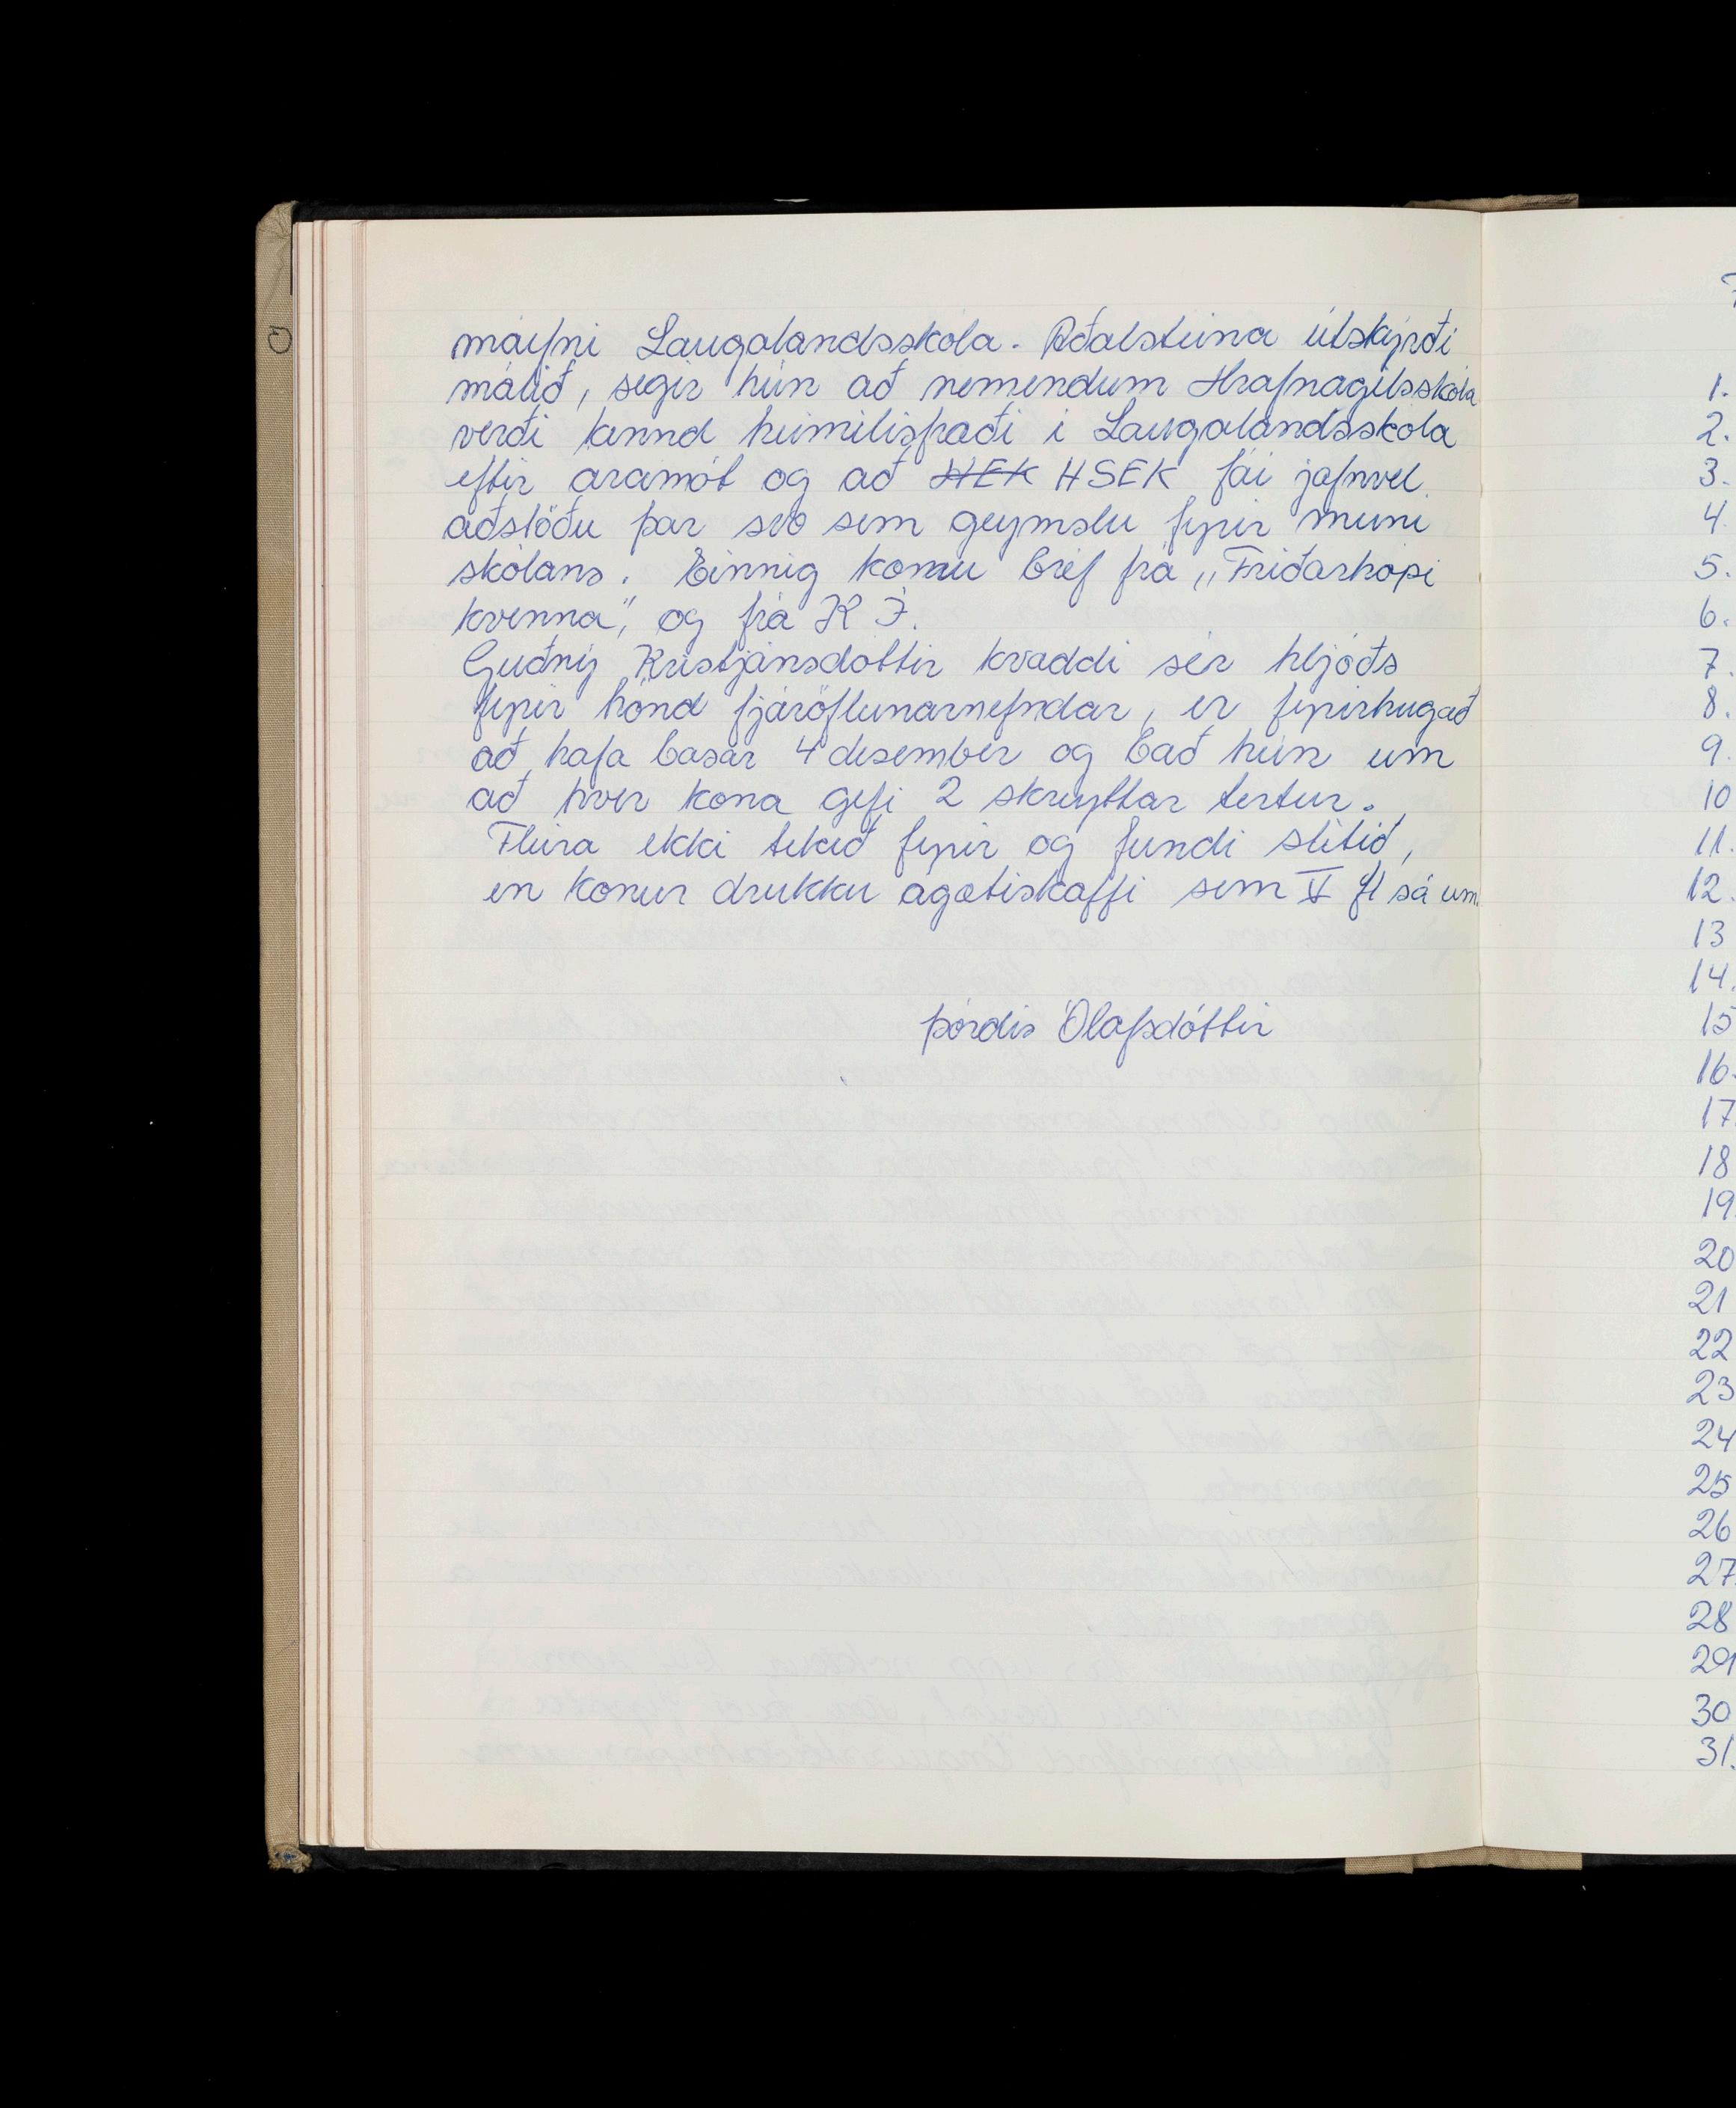 málefni Laugalandsskóla. Aðalsteina útskýrði
málið, segir hún að nemendum Hrafnagilsskóla
verði kennd heimilisfræði í Laugalandsskóla
eftir áramót og að HEK HSEK fái jafnvel
aðstöðu þar svo sem geymslu fyrir muni
skólans. Einnig komu bréf frá „Friðarhópi
kvenna", og frá K Í.
Guðný Kristjánsdóttir kvaddi sér hljóðs
fyrir hönd fjáröflunarnefndar, er fyrirhugað
að hafa basar 4 desember og bað hún um
að hver kona gefi 2 skreyttar tertur.
Fleira ekki tekið fyrir og fundi slitið,
en konur drukku ágætiskaffi sem V fl sá um.
Þórdís Ólafsdóttir
1.
2.
3.
4.
5.
6.
7.
8.
9.
10
11.
12.
13
14.
15
16.
17
18
19
20
21
22
23
24
25
26
27.
28
29
30
31.